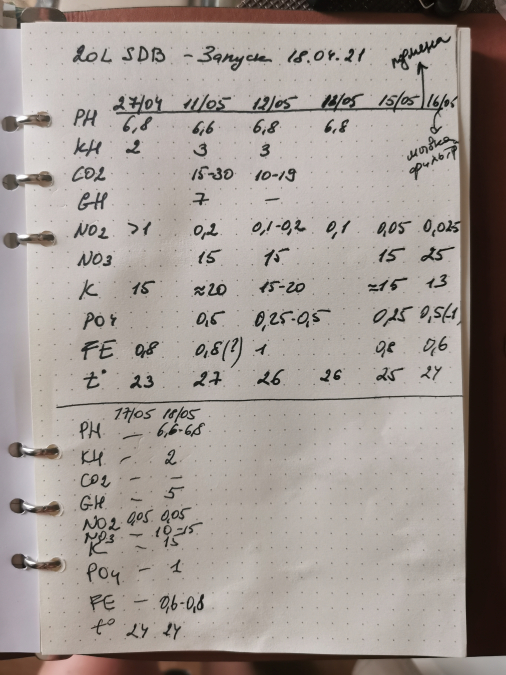 20L SDB - Запуск 18.04.21
подмена
27/04 11/05 12/05 13/05 15/05 16/05
PH 6,8 6,6 6,8 6,8
KH 2 3 3
мойка фильтр
CO2 15-30 10-19
GH 7 -
NO2 >1 0,2 0,1-0,2 0,1 0,05 0,025
NO3 15 15 15 25
K 15 ≈20 15-20 ≈15 13
PO4 0,5 0,25-0,5 0,25 0,5(-1,
FE 0,8 0,8(?) 1 0,8 0,6
t° 23 27 26 26 25 24
17/05 18/05
PH - 6,6-6,8
KH - 2
CO2 - -
GH - 5
NO2 0,05 0,05
NO3 - 10-15
K - 15
PO4 - 1
FE - 0,6-0,8
t° 24 24